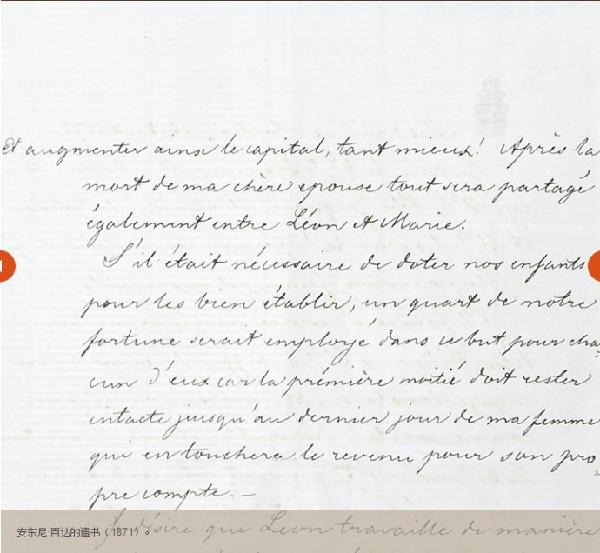 et augmenter ainsi le capital, tant mieux! Après la
mort de ma chère épouse tout sera partagé
également entre Léon et Marie.
S'il était nécessaire de doter nos enfants
pour les bien établir, un quart de notre
fortune serait employé dans ce but pour cha
cun d'eux car la prémière moitié doit rester
intacte jusqu'au dernier jour de ma femme
qui en touchera le revenu pour son pro
pre compte. —
Je désire que Léon travaille de manière
安东尼·百达的遗书（1871）。